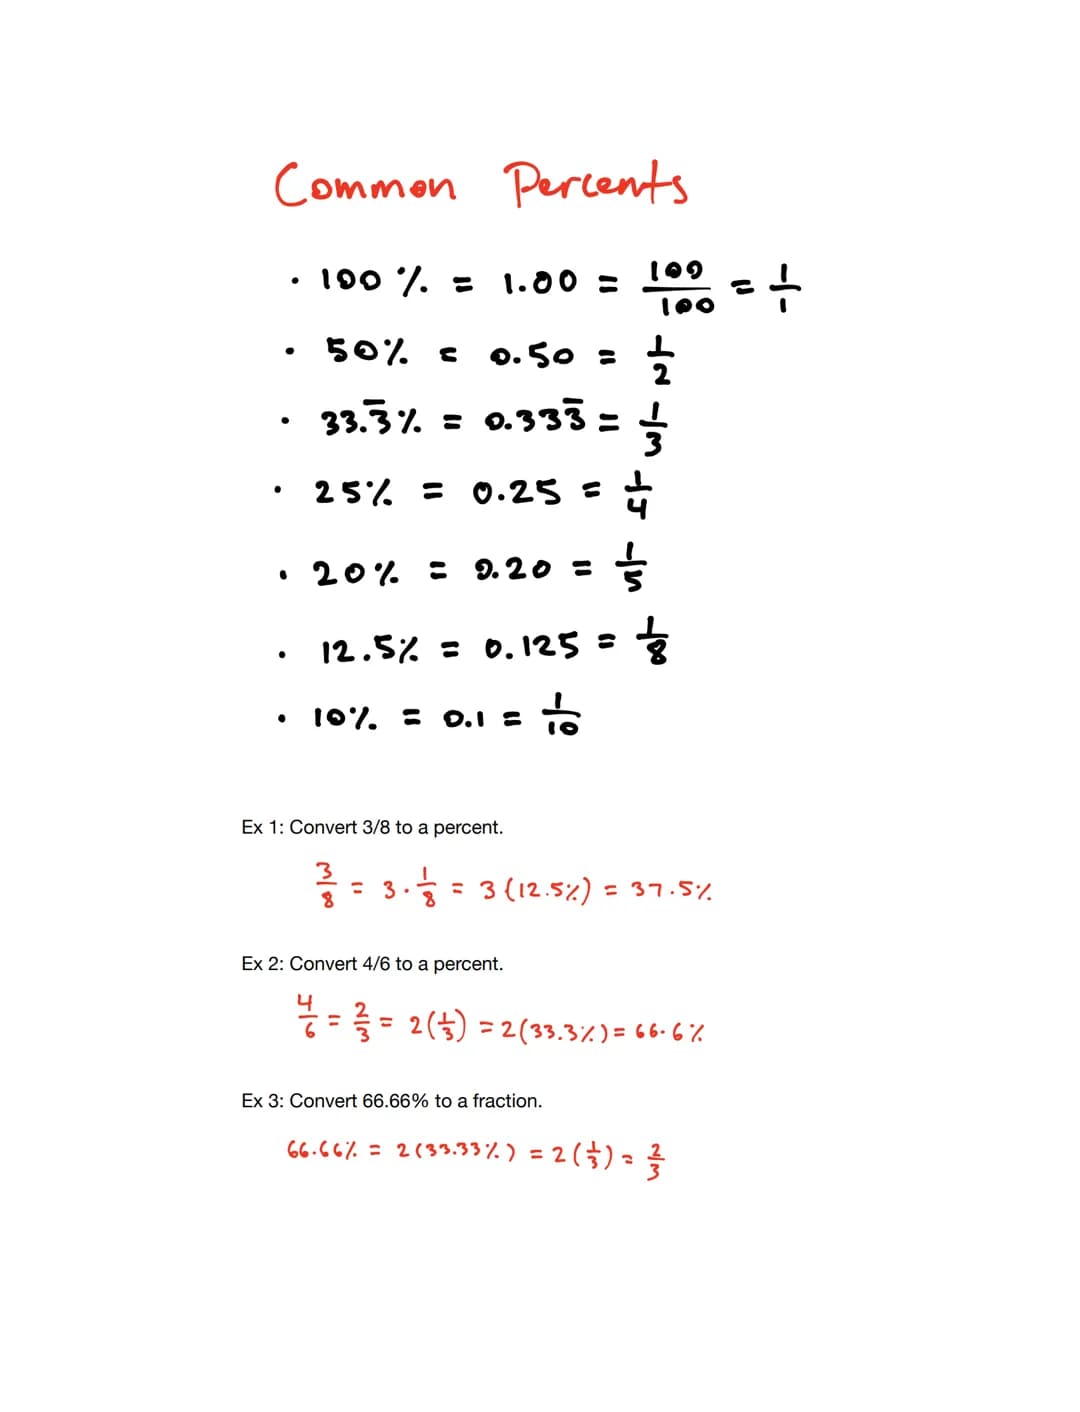 Common Percents
• 100% = 1.00 = 100/100 = 1/1
• 50% = 0.50 = 1/2
• 33.3̅% = 0.333̅ = 1/3
• 25% = 0.25 = 1/4
• 20% = 0.20 = 1/5
• 12.5% = 0.125 = 1/8
• 10% = 0.1 = 1/10
Ex 1: Convert 3/8 to a percent.
3/8 = 3 · 1/8 = 3(12.5%) = 37.5%
Ex 2: Convert 4/6 to a percent.
4/6 = 2/3 = 2(1/3) = 2(33.3%) = 66.6%
Ex 3: Convert 66.66% to a fraction.
66.66% = 2(33.33%) = 2(1/3) = 2/3